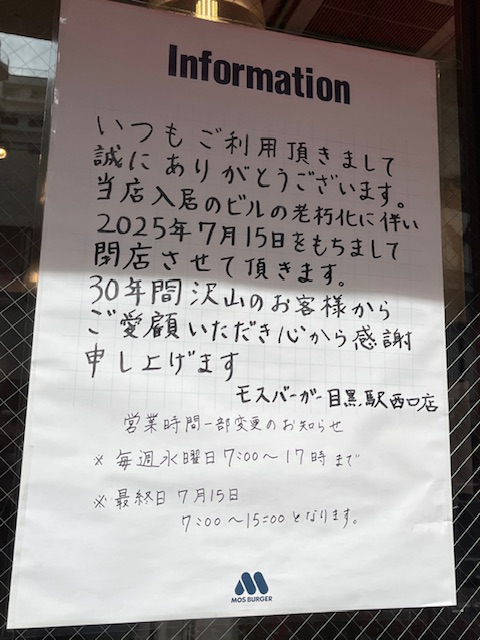 Information
いつもご利用頂きまして
誠にありがとうございます。
当店入居のビルの老朽化に伴い
2025年7月15日をもちまして
閉店させて頂きます。
30年間沢山のお客様から
ご愛顧いただき心から感謝
申し上げます
モスバーガー目黒駅西口店
営業時間一部変更のお知らせ
※ 毎週水曜日 7:00～17時まで
※ 最終日 7月15日
7:00～15:00となります。
MOS BURGER